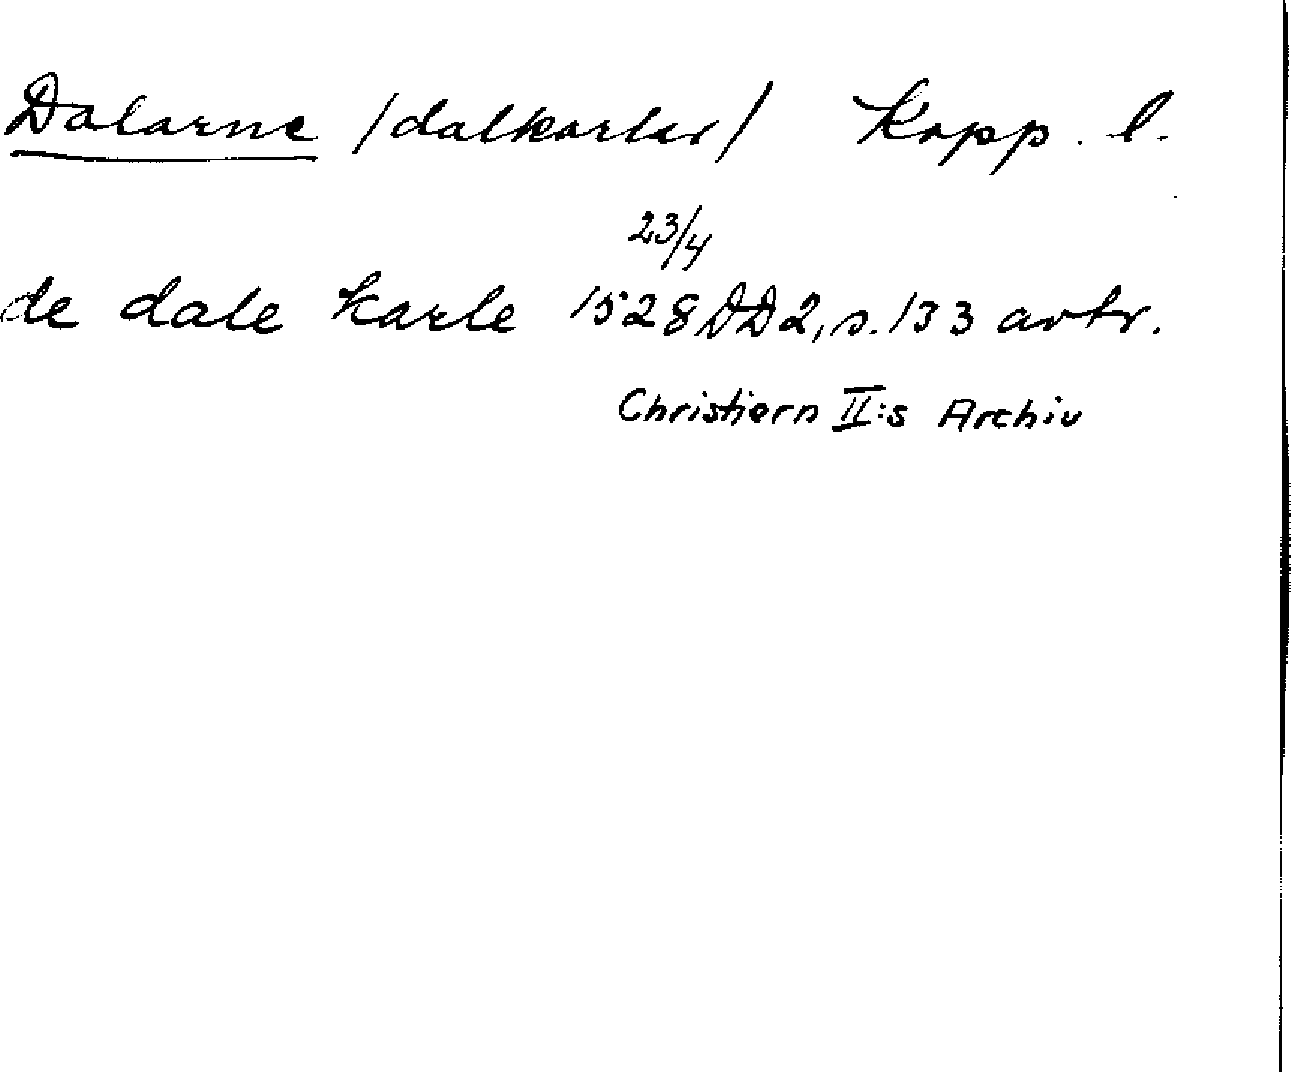 Dalarne /dalkarlar/ Kopp. l.
23/4
de dale karle 1528 DD2, s. 133 avtr.
Christiern II:s Archiv